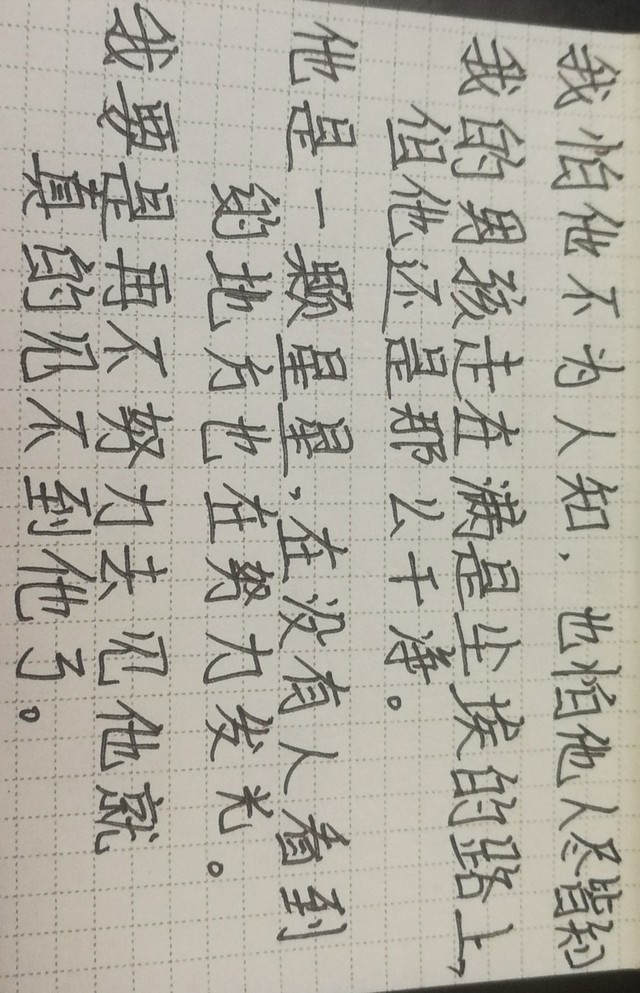 我怕他不为人知，也怕他人尽皆知
我的男孩走在满是尘埃的路上，
但他还是那么干净。
他是一颗星星，在没有人看到
的地方也在努力发光。
我要是再不努力去见他就
真的见不到他了。